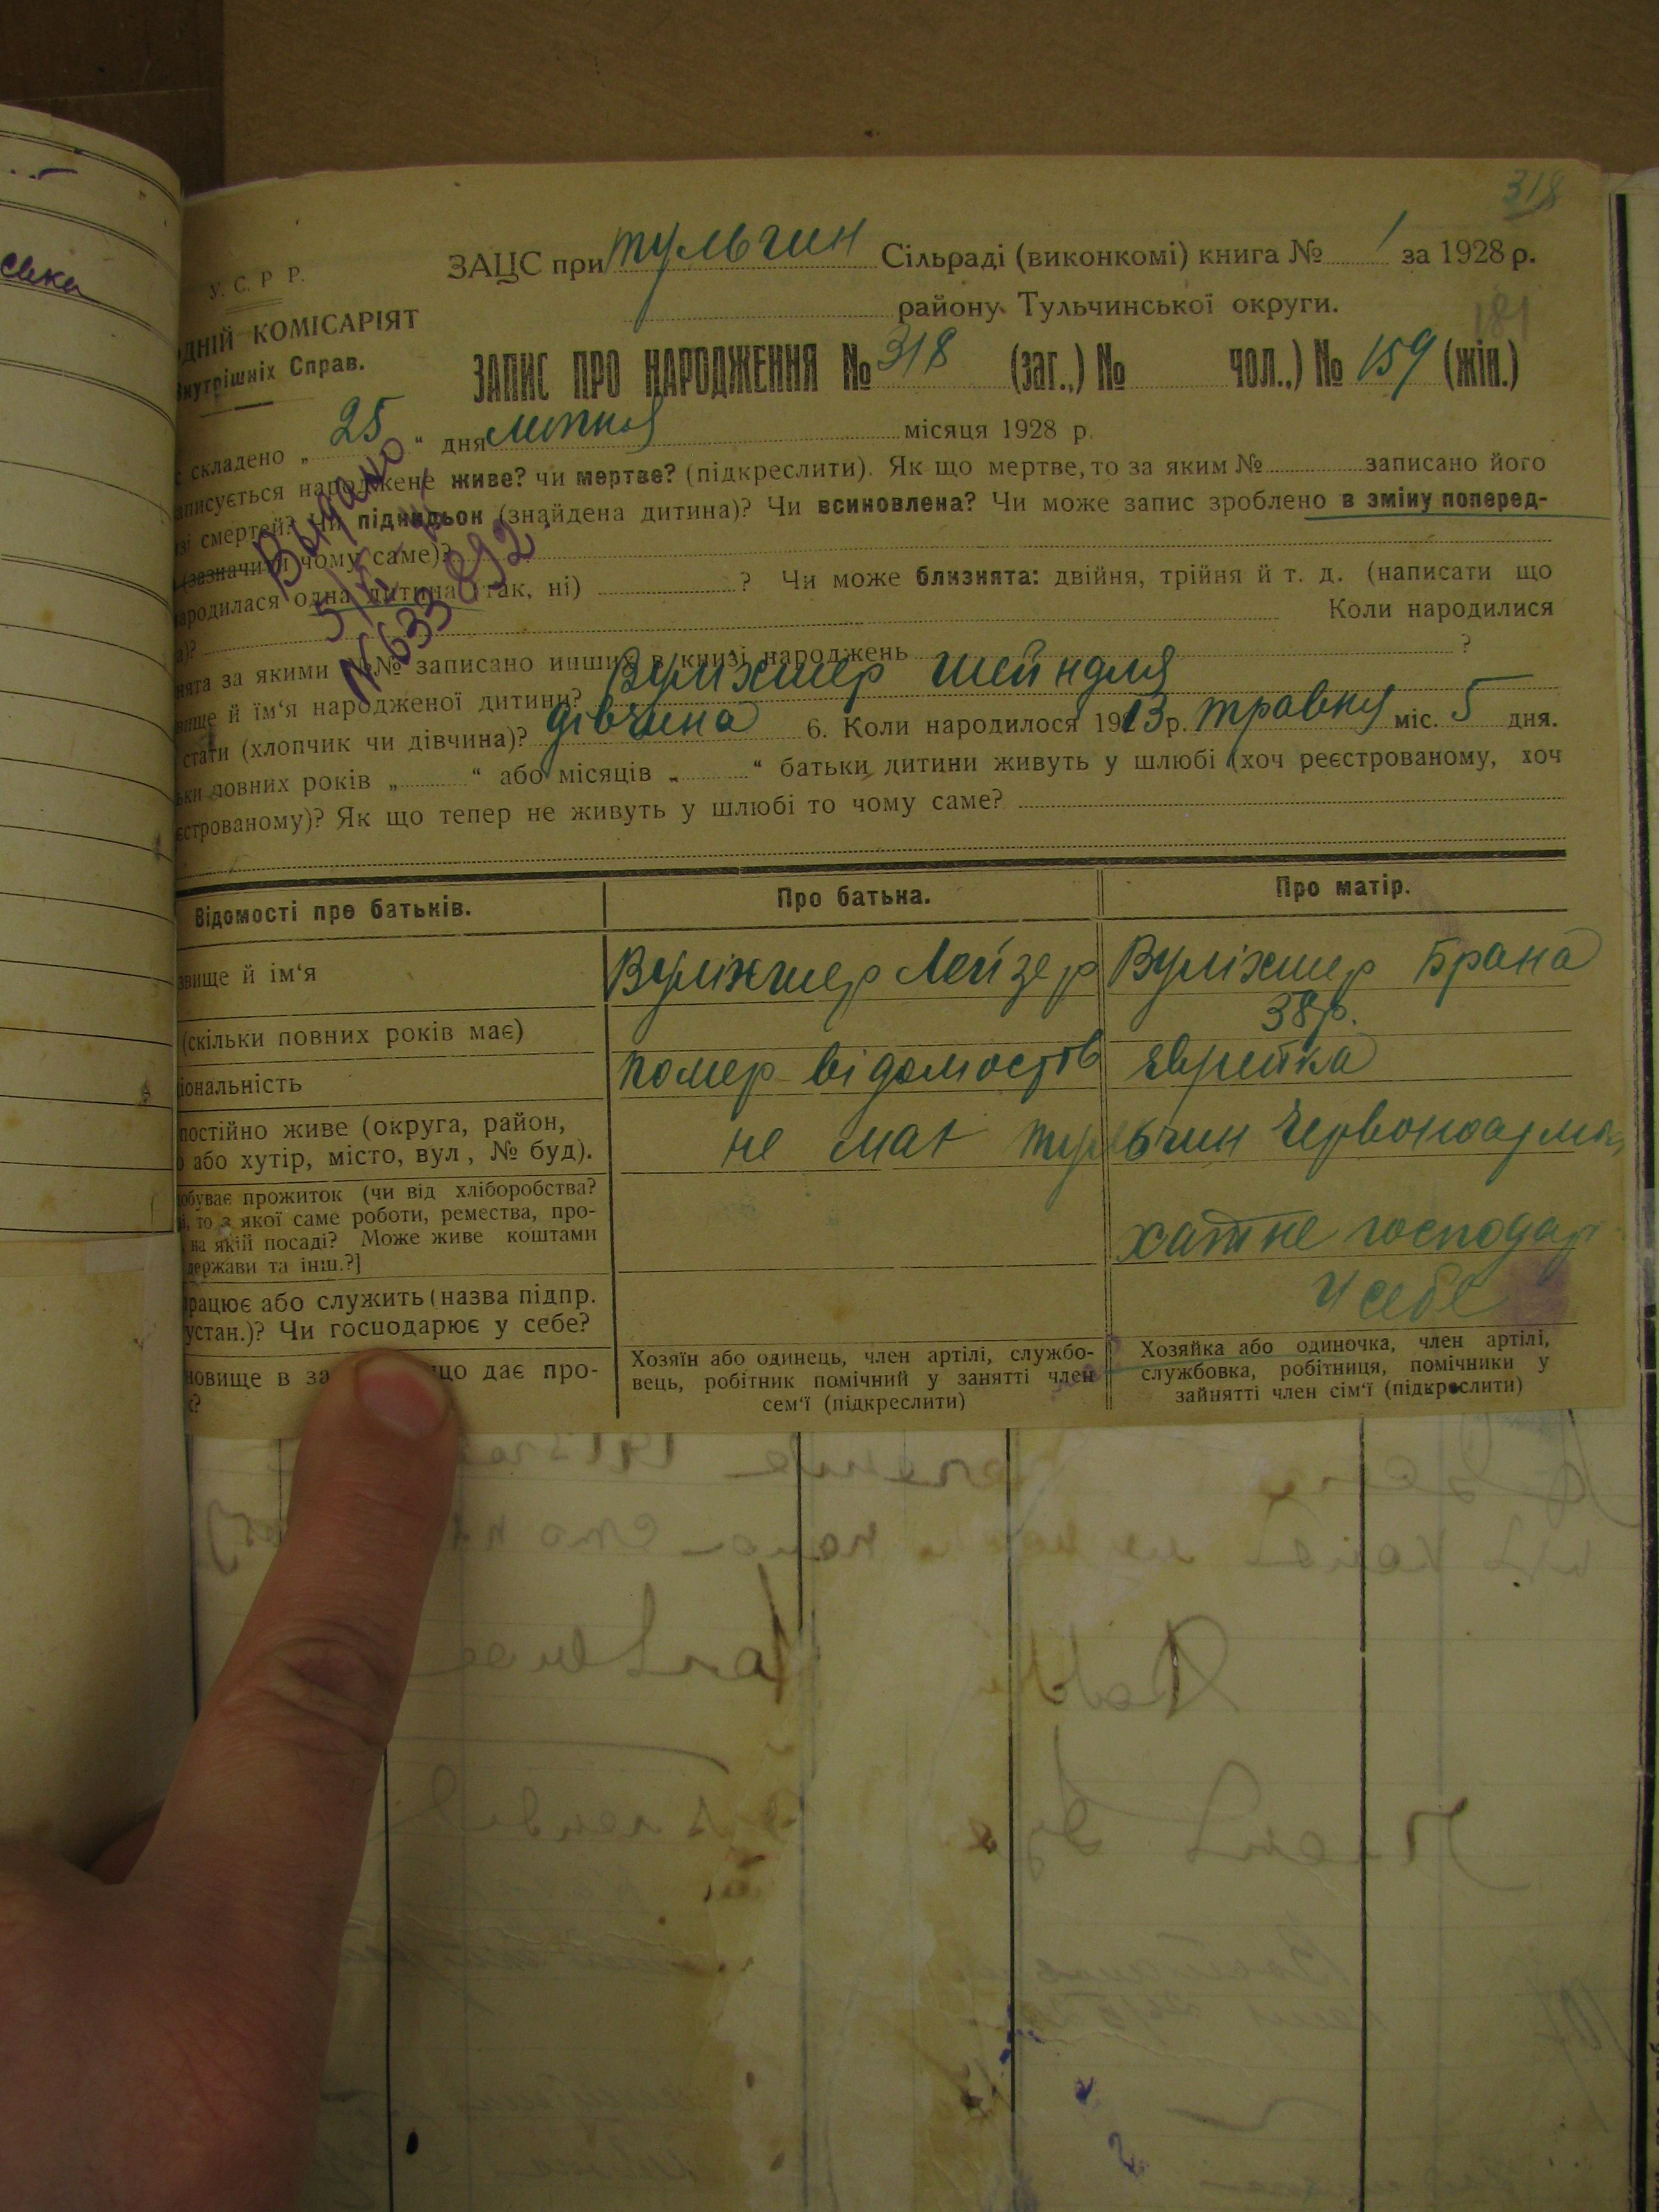 318
У. С. Р Р.
ЗАЦС при Тульчин Сільраді (виконкомі) книга № 1 за 1928 р.
ДНІЙ КОМІСАРІЯТ
району Тульчинської округи.
181
Внутрішніх Справ.
ЗАПИС ПРО НАРОДЖЕННЯ № 318 (заг.,) № чол..) № 159 (жін.)
складено „ 25 “ дня липня місяця 1928 р.
аписується народжене живе? чи мертве? (підкреслити). Як що мертве, то за яким № записано його
зі смертей? Чи підкидьок (знайдена дитина)? Чи всиновлена? Чи може запис зроблено в зміну поперед-
(зазначити чому саме)?
ародилася одна дитина (так, ні) ? Чи може близнята: двійня, трійня й т. д. (написати що
а)? Коли народилися
нята за якими №№ записано инших в книзі народжень ?
Видано
№ 633892
вище й їм‘я народженої дитини? Вулихмер Шейндля
стати (хлопчик чи дівчина)? дівчина 6. Коли народилося 1913 р. травня міс. 5 дня.
ьки повних років „ “ або місяців „ “ батьки дитини живуть у шлюбі (хоч реєстрованому, хоч
єстрованому)? Як що тепер не живуть у шлюбі то чому саме?
Відомості про батьків. Про батька. Про матір.
звище й ім‘я Вуліхмер Лейзер Вуліхмер Брана
(скільки повних років має) 38 р.
іональність помер відомостів еврейка
постійно живе (округа, район,
або хутір, місто, вул, № буд). не має Тульчин Червоноарм
обуває прожиток (чи від хліборобства?
то з якої саме роботи, ремества, про-
на якій посаді? Може живе коштами
держави та інш.?] хатнє господар
працює або служить (назва підпр.
устан.)? Чи господарює у себе? у себе
новище в за що дає про-
Хозяїн або одинець, член артілі, службо-
вець, робітник помічний у занятті член
сем‘ї (підкреслити)
Хозяйка або одиночка, член артілі,
службовка, робітниця, помічники у
зайнятті член сім‘ї (підкреслити)